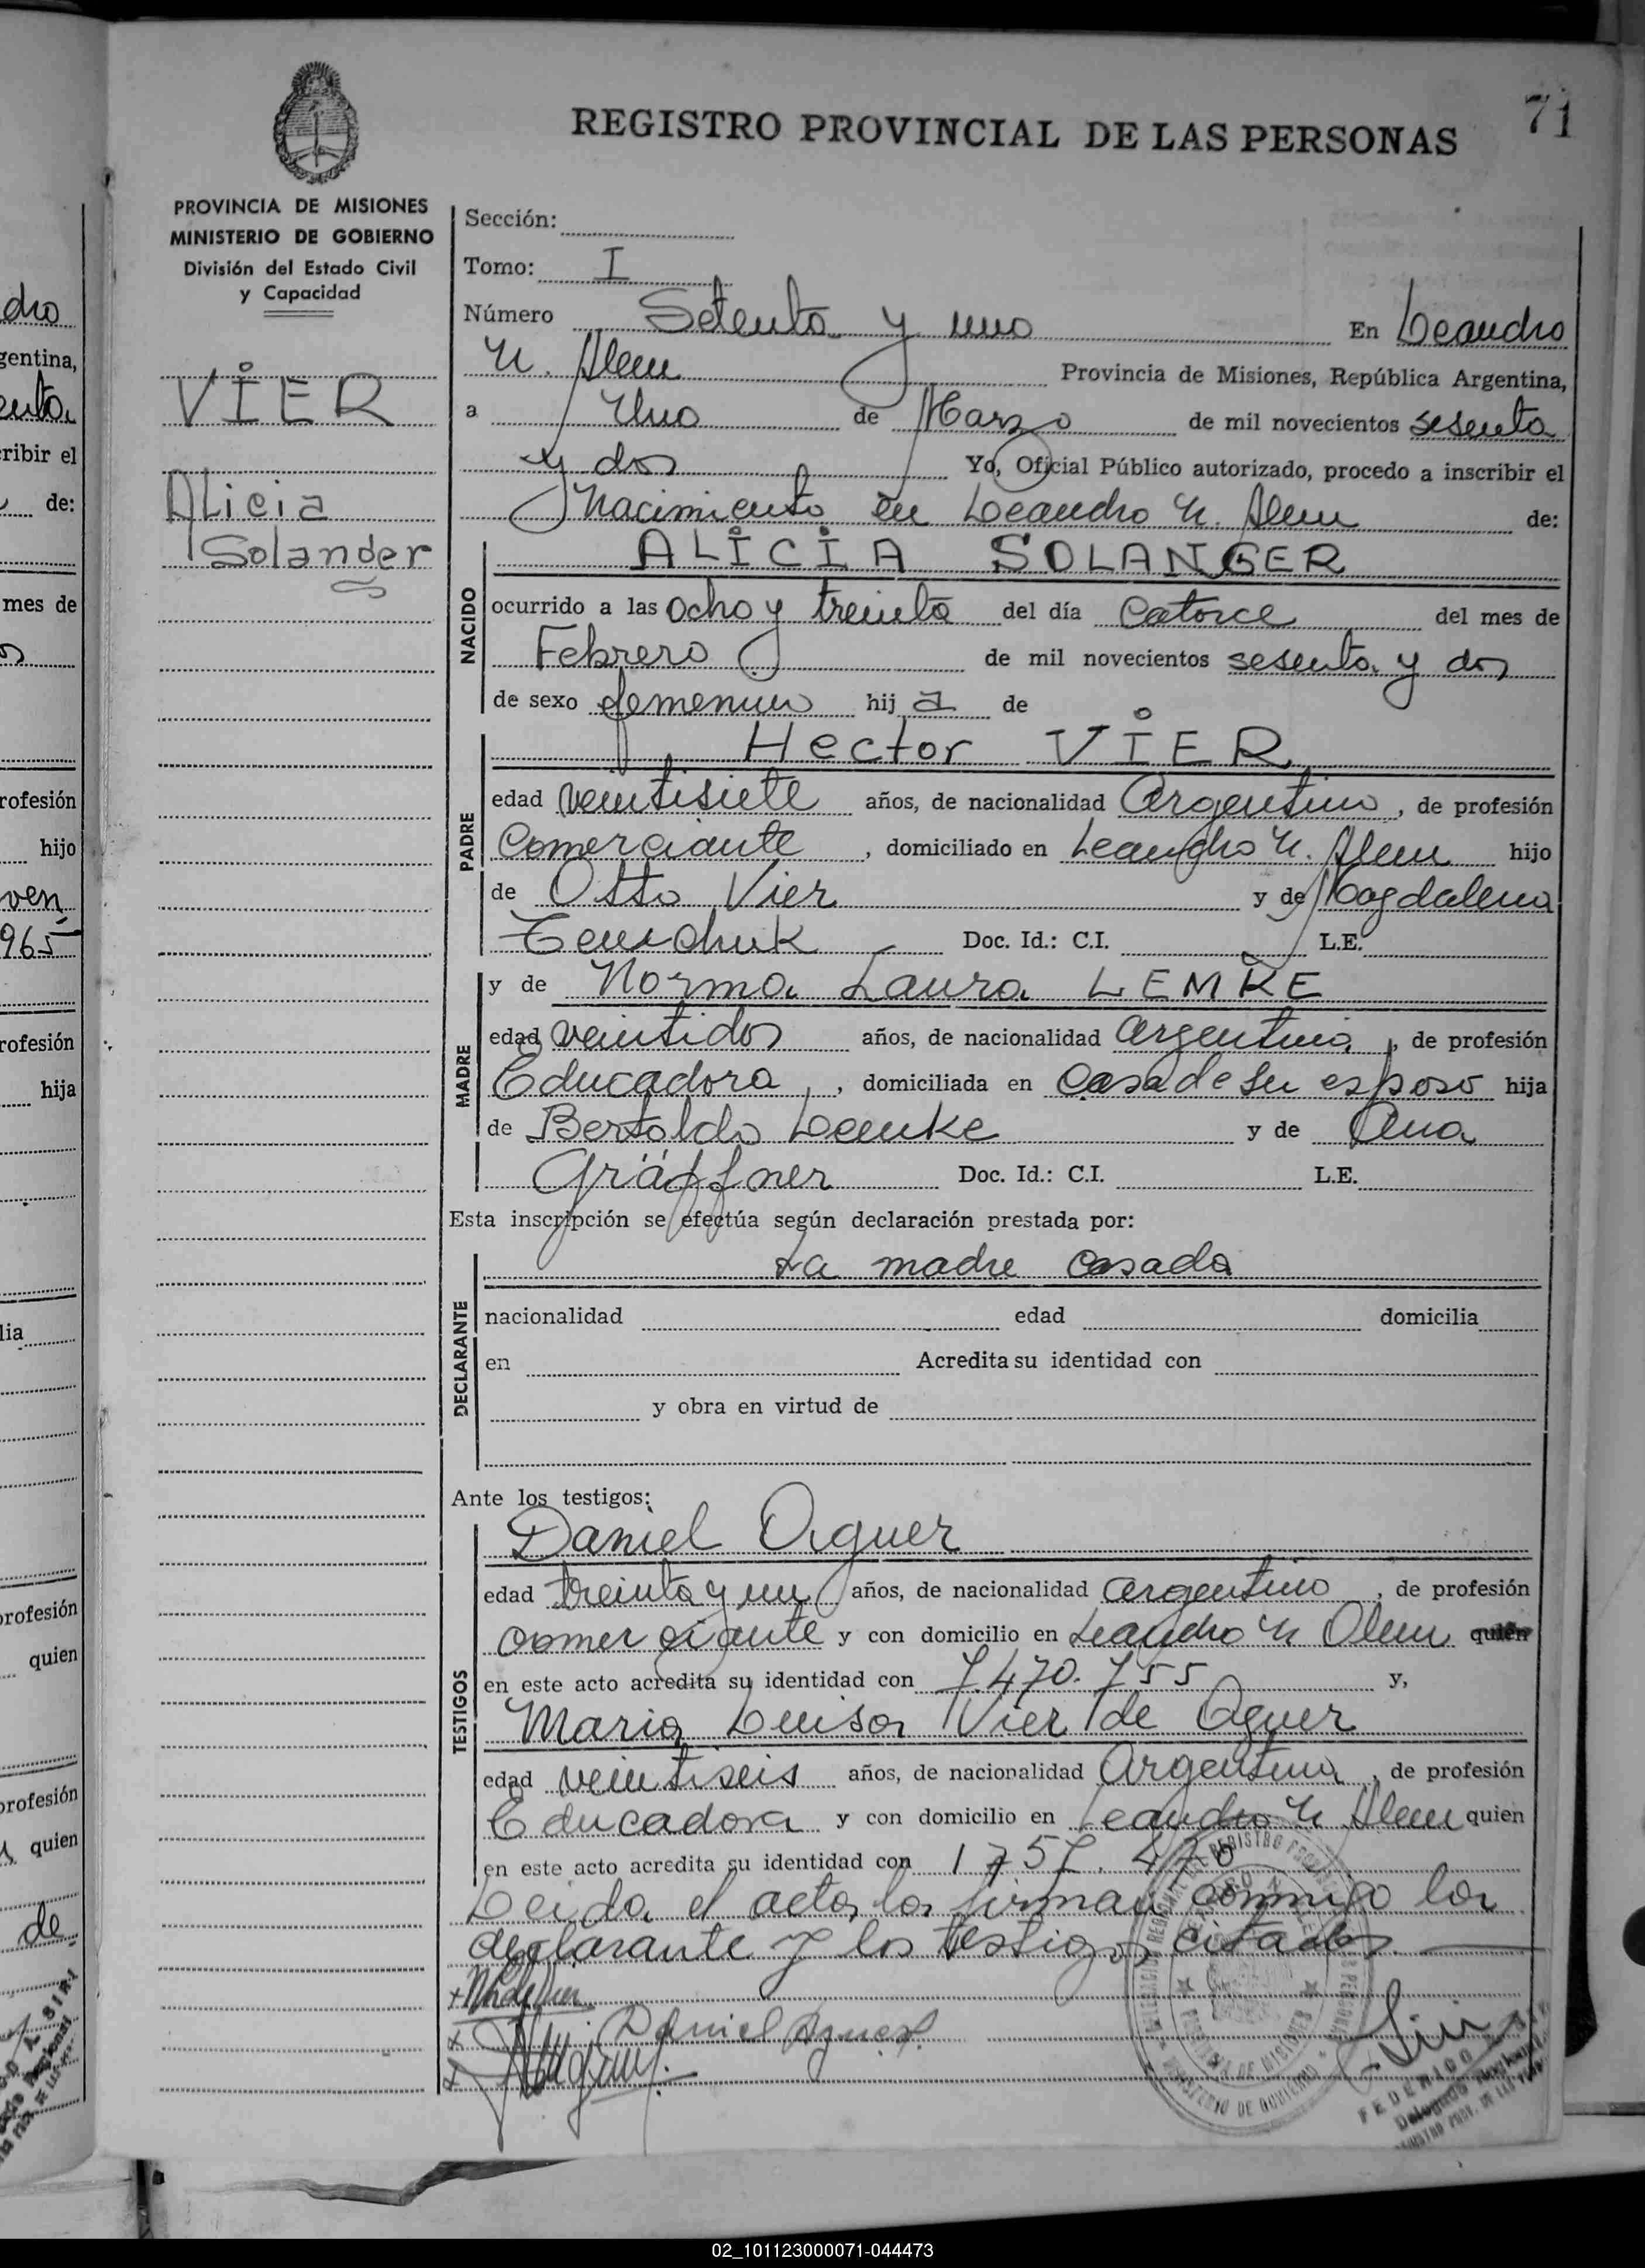 71
REGISTRO PROVINCIAL DE LAS PERSONAS
PROVINCIA DE MISIONES
MINISTERIO DE GOBIERNO
División del Estado Civil
y Capacidad
VIER
Alicia
Solander
Sección:
Tomo: I
Número Setenta y uno En Leandro
N. Alem Provincia de Misiones, República Argentina,
a Uno de Marzo de mil novecientos sesenta
y dos Yo, Oficial Público autorizado, procedo a inscribir el
Nacimiento en Leandro N. Alem de:
NACIDO
ALICIA SOLANGER
ocurrido a las ocho y treinta del día Catorce del mes de
Febrero de mil novecientos sesenta y dos
de sexo femenino hij a de
PADRE
Hector VIER
edad veintisiete años, de nacionalidad Argentino, de profesión
Comerciante, domiciliado en Leandro N. Alem hijo
de Otto Vier y de Magdalena
Doc. Id.: C.I. L.E.
MADRE
y de Norma Laura LEMKE
edad veintidos años, de nacionalidad argentina, de profesión
Educadora, domiciliada en Casa de su esposo hija
de Bertoldo Lemke y de Ana
Gräffner Doc. Id.: C.I. L.E.
Esta inscripción se efectúa según declaración prestada por:
DECLARANTE
La madre casada
nacionalidad edad domicilia
en Acredita su identidad con
y obra en virtud de
Ante los testigos:
TESTIGOS
Daniel Aguer
edad treinta y un años, de nacionalidad argentino, de profesión
comerciante y con domicilio en Leandro N Alem quien
en este acto acredita su identidad con 7.470.755 y,
Maria Luisa Vier de Aguer
edad veintiseis años, de nacionalidad Argentina, de profesión
Educadora y con domicilio en Leandro N. Alem quien
en este acto acredita su identidad con
Leida el acta, la firman conmigo la
declarante y los testigos citados.
Daniel Aguer
FEDERICO
02_101123000071-044473